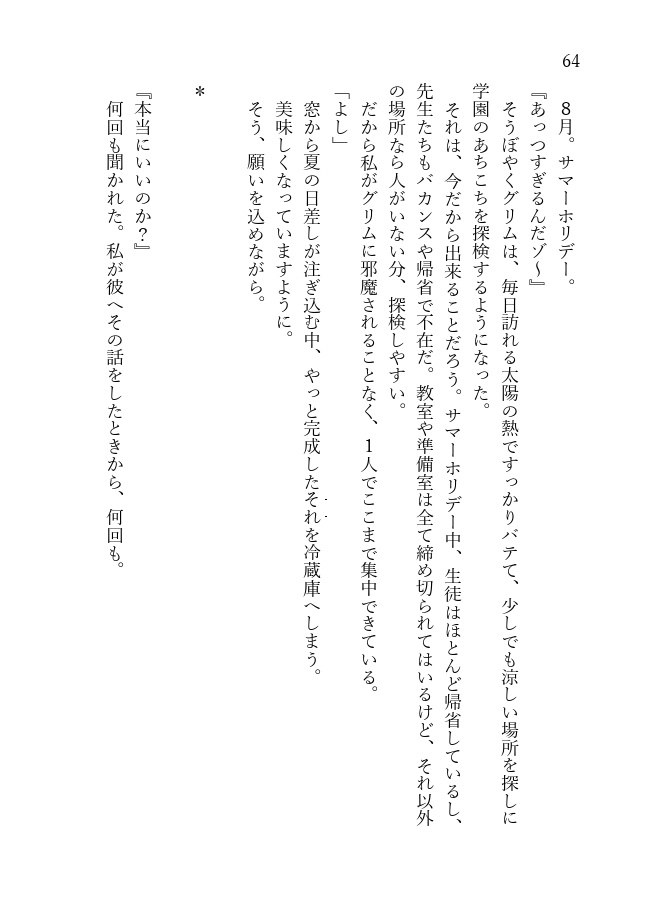 64
８月。サマーホリデー。
『あっつすぎるんだゾ〜』
そうぼやくグリムは、毎日訪れる太陽の熱ですっかりバテて、少しでも涼しい場所を探しに
学園のあちこちを探検するようになった。
それは、今だから出来ることだろう。サマーホリデー中、生徒はほとんど帰省しているし、
先生たちもバカンスや帰省で不在だ。教室や準備室は全て締め切られてはいるけど、それ以外
の場所なら人がいない分、探検しやすい。
だから私がグリムに邪魔されることなく、１人でここまで集中できている。
「よし」
窓から夏の日差しが注ぎ込む中、やっと完成したそれを冷蔵庫へしまう。
美味しくなっていますように。
そう、願いを込めながら。
＊
『本当にいいのか？』
何回も聞かれた。私が彼へその話をしたときから、何回も。